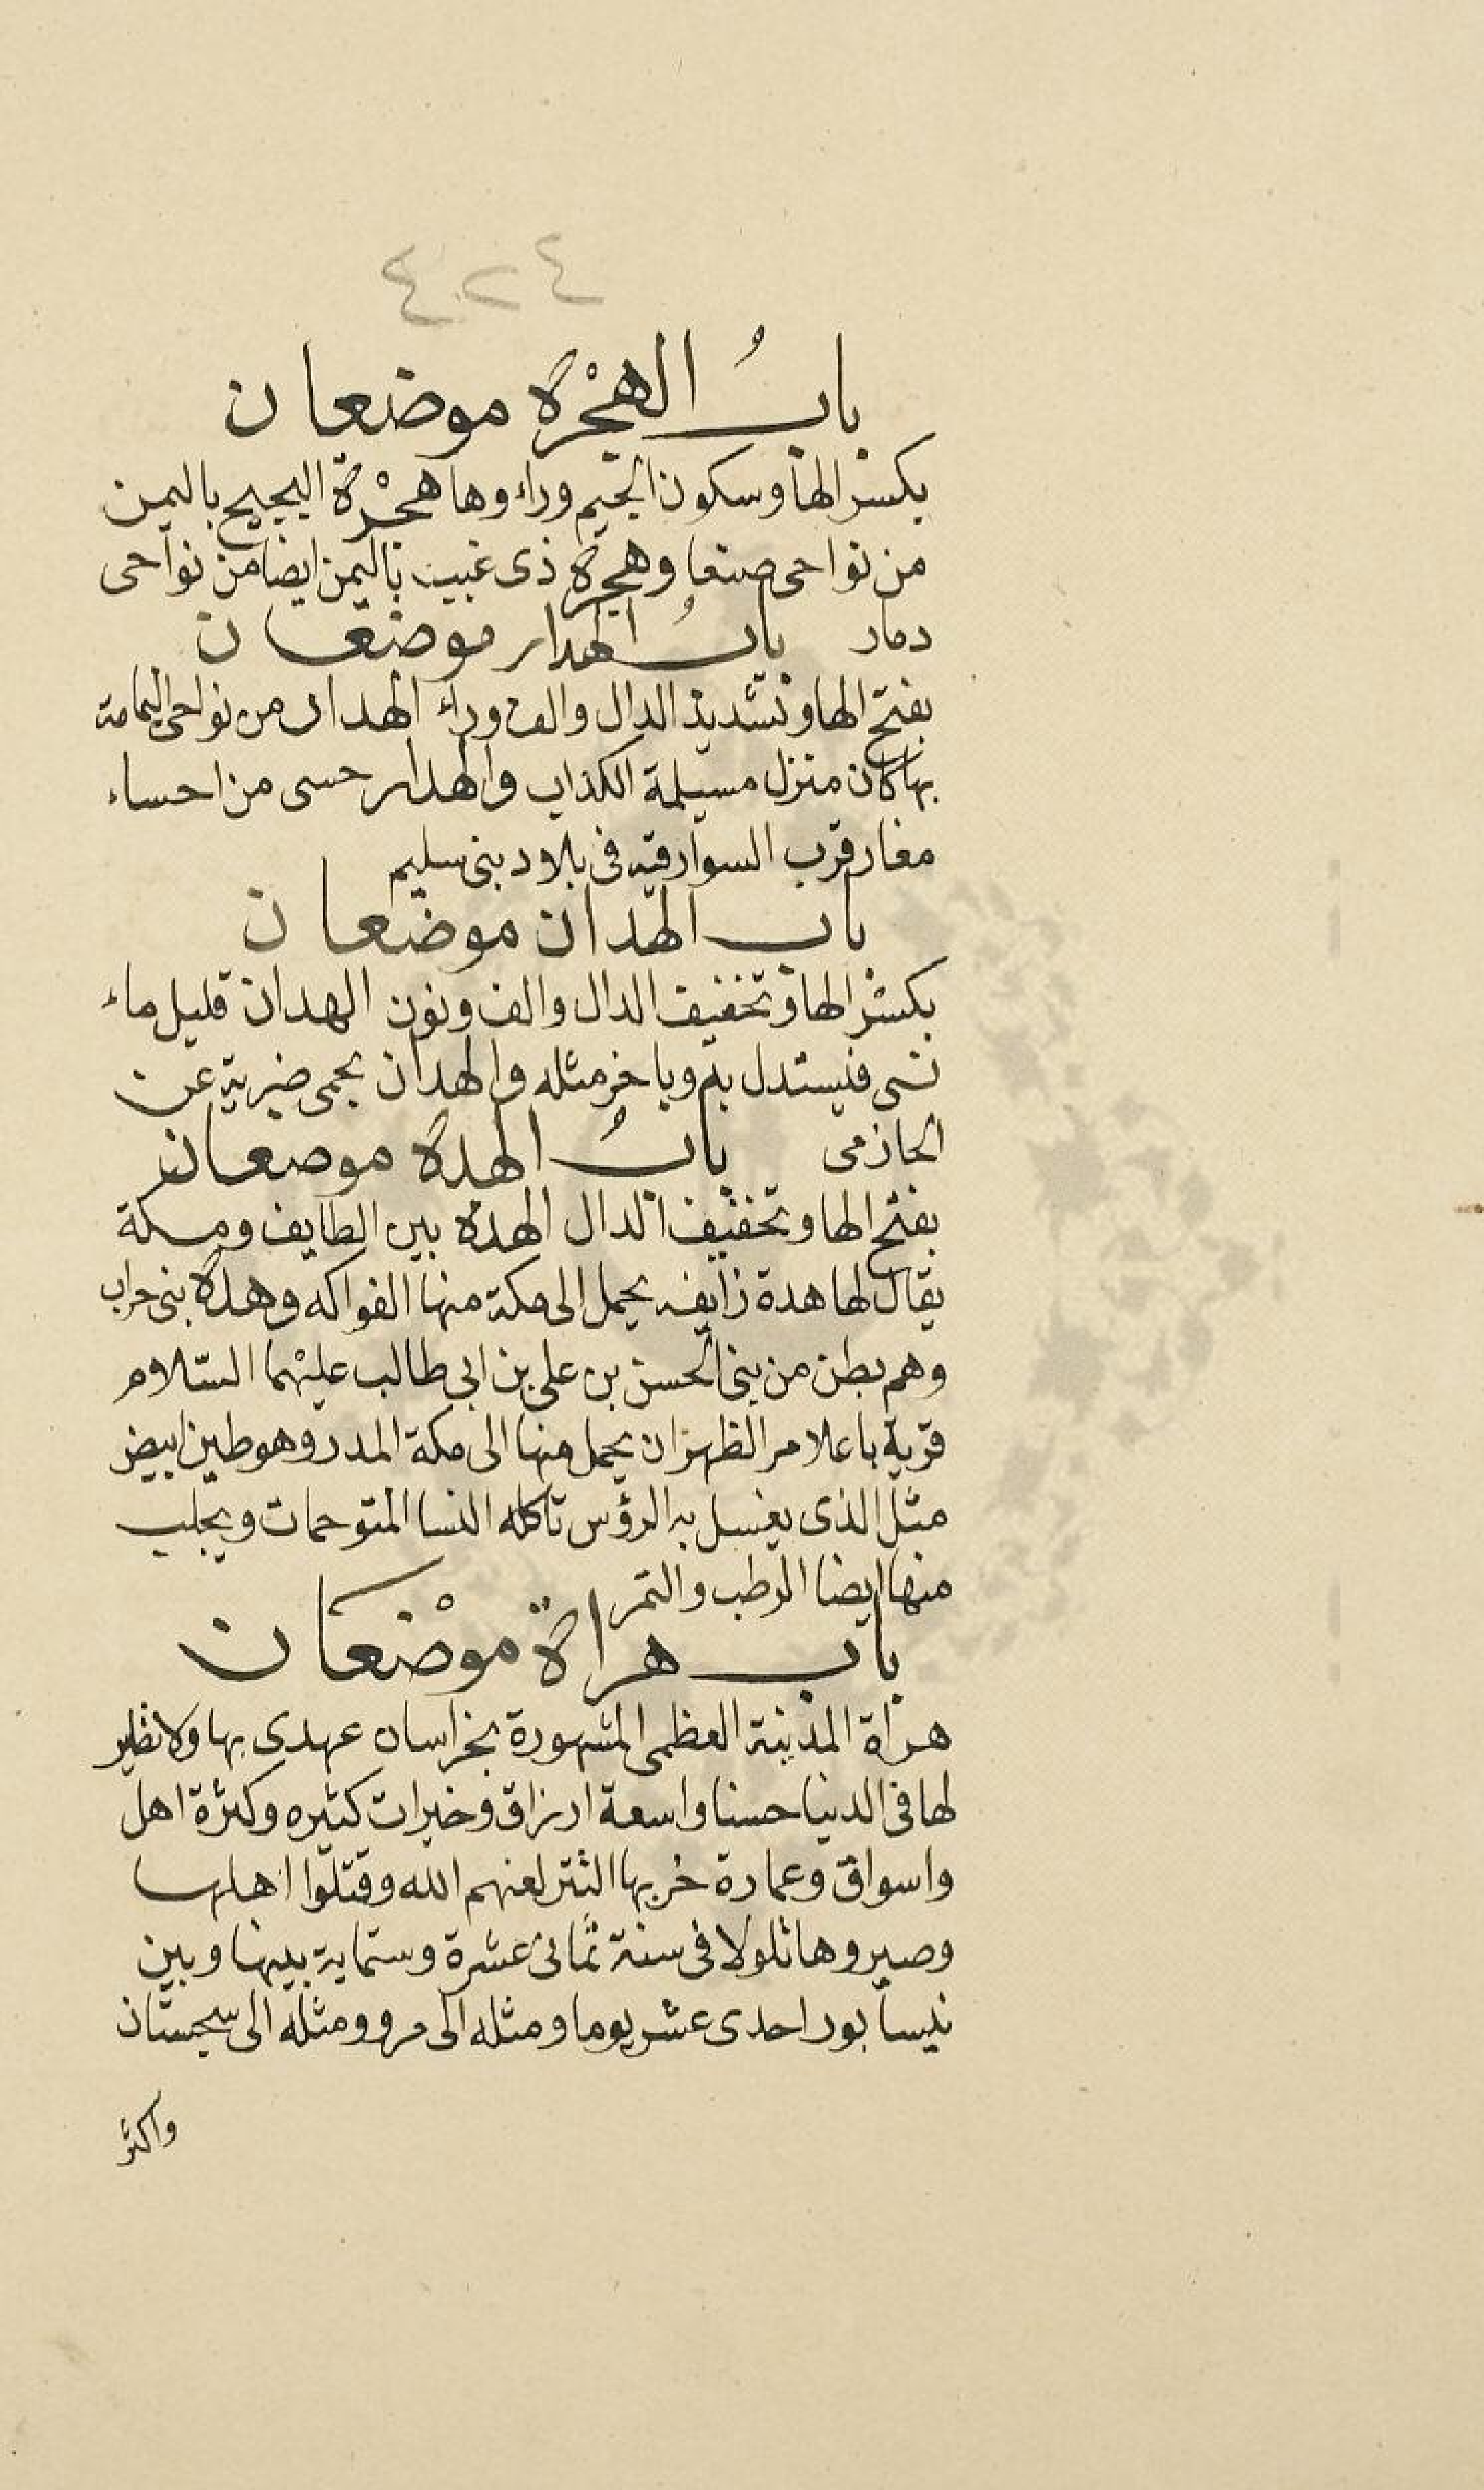 ٤٢٤
بابُ الهجْرة موضعان
بكسر الها وسكون الجيم وراء وها هجْرة البحيح باليمن
من نواحى صنعا وهجرة ذى غبب باليمن ايضا من نواحى
دمار بابُ الهدار موضعان
بفتح الها وتشديد الدال والف وراء الهدار من نواحى اليمامة
بها كان منزل مسيلمة الكذاب والهدار حسى من احساء
مغار قرب السوارقيه فى بلاد بنى سليم
باب الهدان موضعان
بكسر الها وتخفيف الدال والف ونون الهدان قليل ماء
نسى فيستدل به وباخر مثله والهدان بحمى ضرية عن
الحازمى بابُ الهدة موصعان
بفتح الها وتخفيف الدال الهدة بين الطايف ومكة
يقال لها هدة زايفه يحمل الى مكة منها الفواكه وهدة بنى حراب
وهم بطن من بنى الحسن بن على بن ابى طالب عليْهما السّلام
قرية باعلا مر الظهران يحمل منها الى مكة المدر وهو طين ابيض
مثل الذى يغسل به الرؤس تاكله النسا المتوحمات ويجلب
منها ايضا الرطب والتمر
باب هراة موْضعان
هراة المدينة العظمى المشهورة بخراسان عهدى بها ولا نظير
لها فى الدنيا حسنا واسعة ارزاق وخيرات كثيره وكثرة اهل
واسواق وعمارة خربها التتر لعنهم الله وقتلوا اهلها
وصيروها تلولا فى سنة ثمانى عشرة وستماية بينها وبين
نيسابور احدى عشر يوما ومثله الى مرو ومثله الى سجستان
واكثر